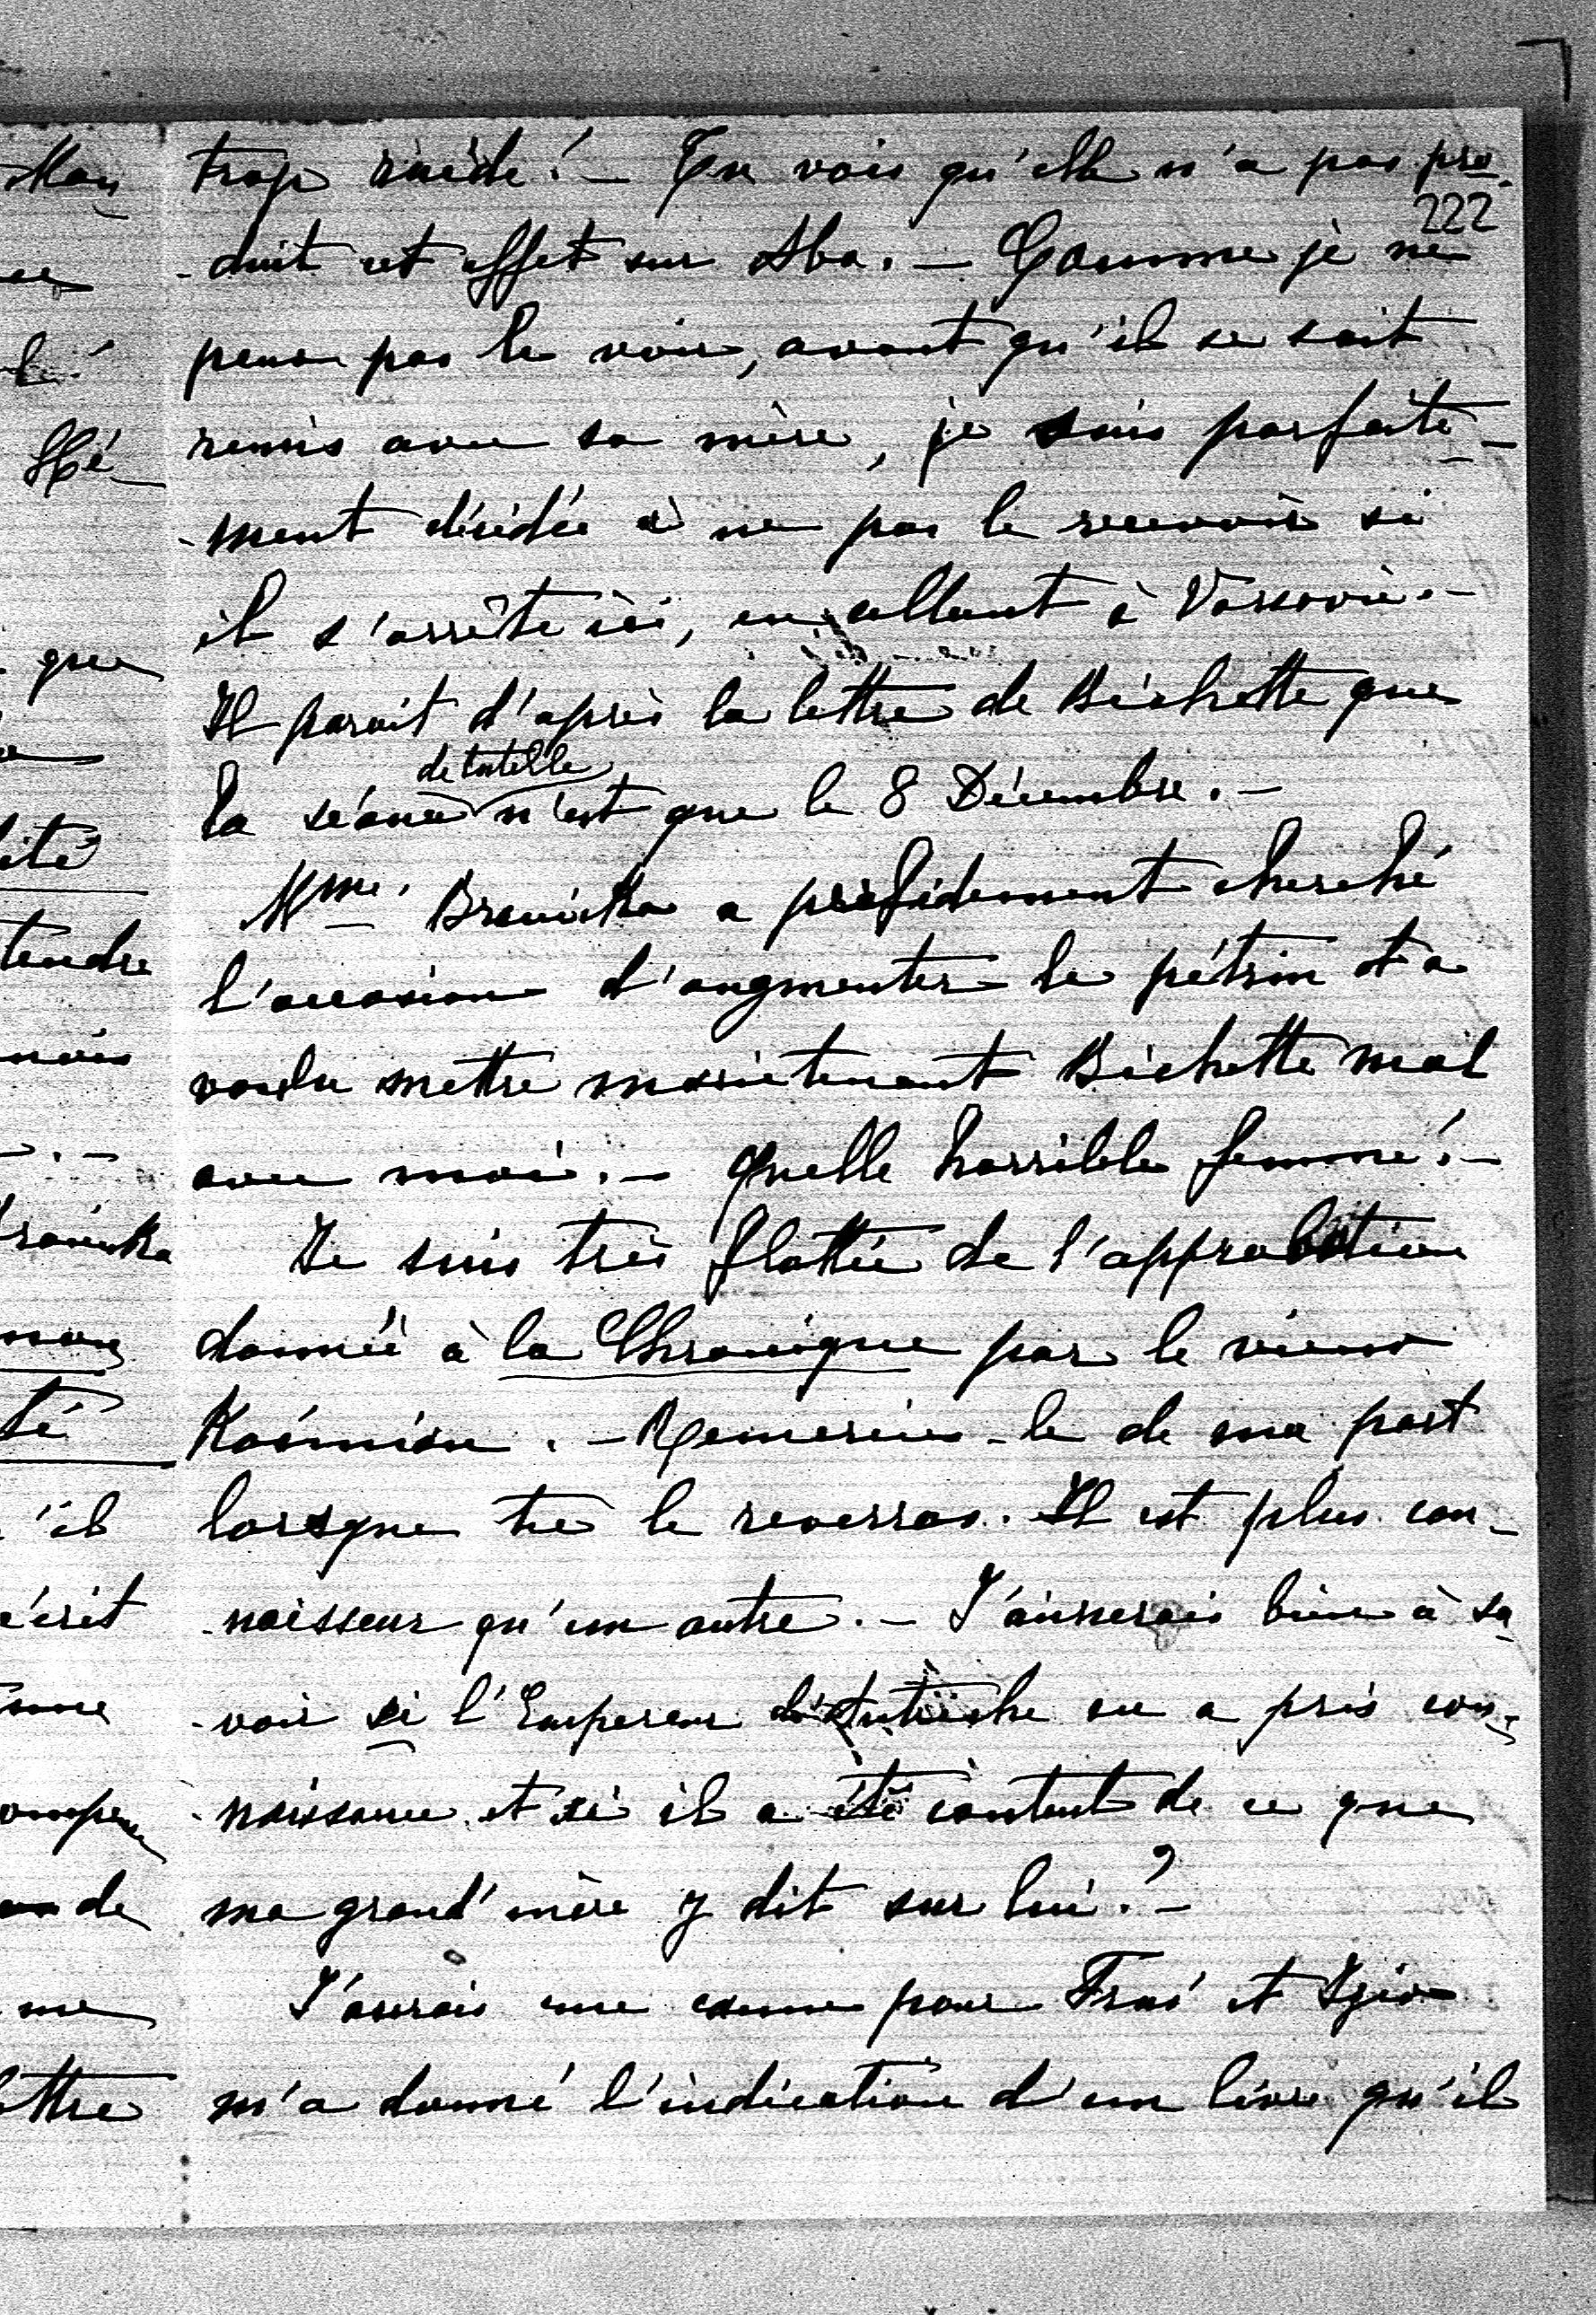 trop raide! — Tu vois qu'elle n'a pas pro-
222
-duit cet effet sur Aba. — Comme je ne
peux pas le voir, avant qu'il se soit
remis avec sa mère, je suis parfaite-
-ment décidée à ne pas le recevoir si
il s'arrête ici, en allant à Varsovie. —
Il parait d'après la lettre de Bichette que
la séance de tutelle n'est que le 8 Décembre. —
Mme. Branicka a perfidement cherché
l'occasion d'augmenter le pétrin et a
voulu mettre maintenant Bichette mal
avec moi. — Quelle horrible femme! —
Je suis très flattée de l'approbation
donnée à la Chronique par le vieux
Koźmian. — Remercie-le de ma part
lorsque tu le reverras. Il est plus con-
-naisseur qu'un autre. — J'aimerais bien à sa-
-voir si l'Empereur d'Autriche en a pris con-
-naissance et si il a été content de ce que
ma grand'mère y dit sur lui? —
J'aurais une canne pour Fraś et
m'a donné l'indication d'un livre qu'il